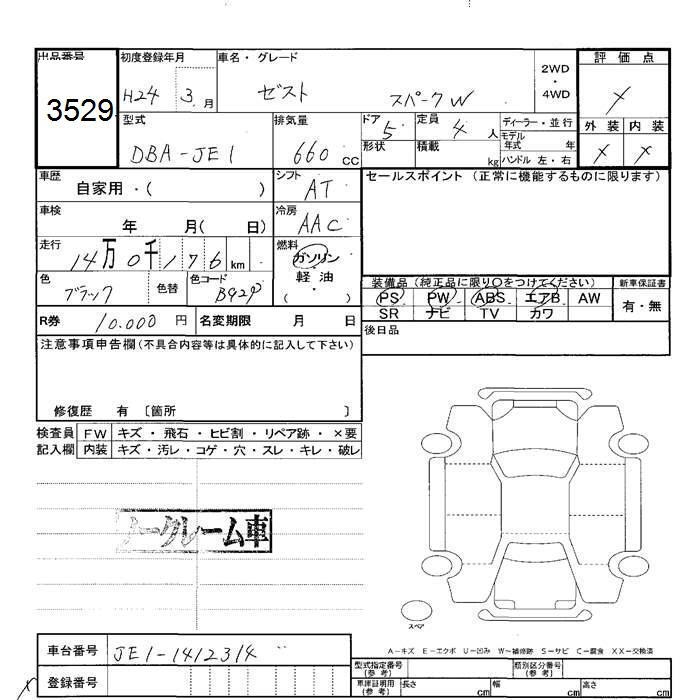 出品番号 3529
初度登録年月 H24 3 月
車名・グレード ゼスト スパーク W
2WD ・ 4WD
評価点
外装 内装
型式 DBA-JE1
排気量 660 cc
ドア 5
定員 4 人
形状
積載 kg
ディーラー・並行
モデル年式 年
ハンドル 左・右
車歴 自家用・( )
シフト AT
セールスポイント (正常に機能するものに限ります)
車検 年 月( 日)
冷房 AAC
走行 14万0千176 km
燃料 ガソリン 軽油 ( )
色 ブラック 色替 色コード B92P
装備品 (純正品に限り〇をつけてください) 新車保証書
PS PW ABS エアB AW 有・無
SR ナビ TV カワ
R券 10.000 円 名変期限 月 日
後日品
注意事項申告欄(不具合内容等は具体的に記入して下さい)
修復歴 有 〔箇所 〕
検査員 FW キズ・飛石・ヒビ割・リペア跡・×要
記入欄 内装 キズ・汚レ・コゲ・穴・スレ・キレ・破レ
ノークレーム車
スペア
A-キズ E-エクボ U-凹み W-補修跡 S-サビ C-腐食 XX-交換済
車台番号 JE1-1412314
登録番号
型式指定番号 (参考) 類別区分番号 (参考)
車庫証明用 (参考) 長さ cm 幅 cm 高さ cm